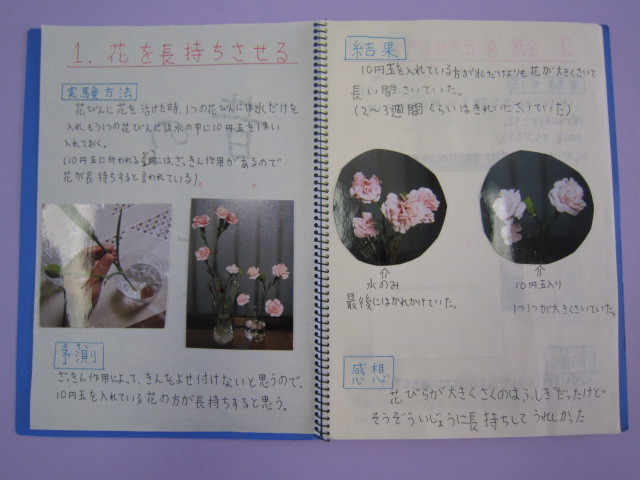 1. 花を長持ちさせる
実験方法
花びんに花を活けた時、1つの花びんには水だけを
入れ、もう1つの花びんには水の中に10円玉を1まい
入れておく。
(10円玉に使われる金属には、ざっきん作用があるので
花が長持ちすると言われている)
予測
よそく
ざっきん作用によって、きんをよせ付けないと思うので、
10円玉を入れている花の方が長持ちすると思う。
結果
10円玉を入れている方が水だけよりも花が大きくさいて
長い間さいていた。
(2~3週間くらいはきれいにさいていた)
⇧
水のみ
最後にはかれかけていた。
⇧
10円玉入り
1つ1つが大きくさいていた。
感想
花びらが大きくさくのはふしぎだったけど
そうぞういじょうに長持ちしてうれしかった